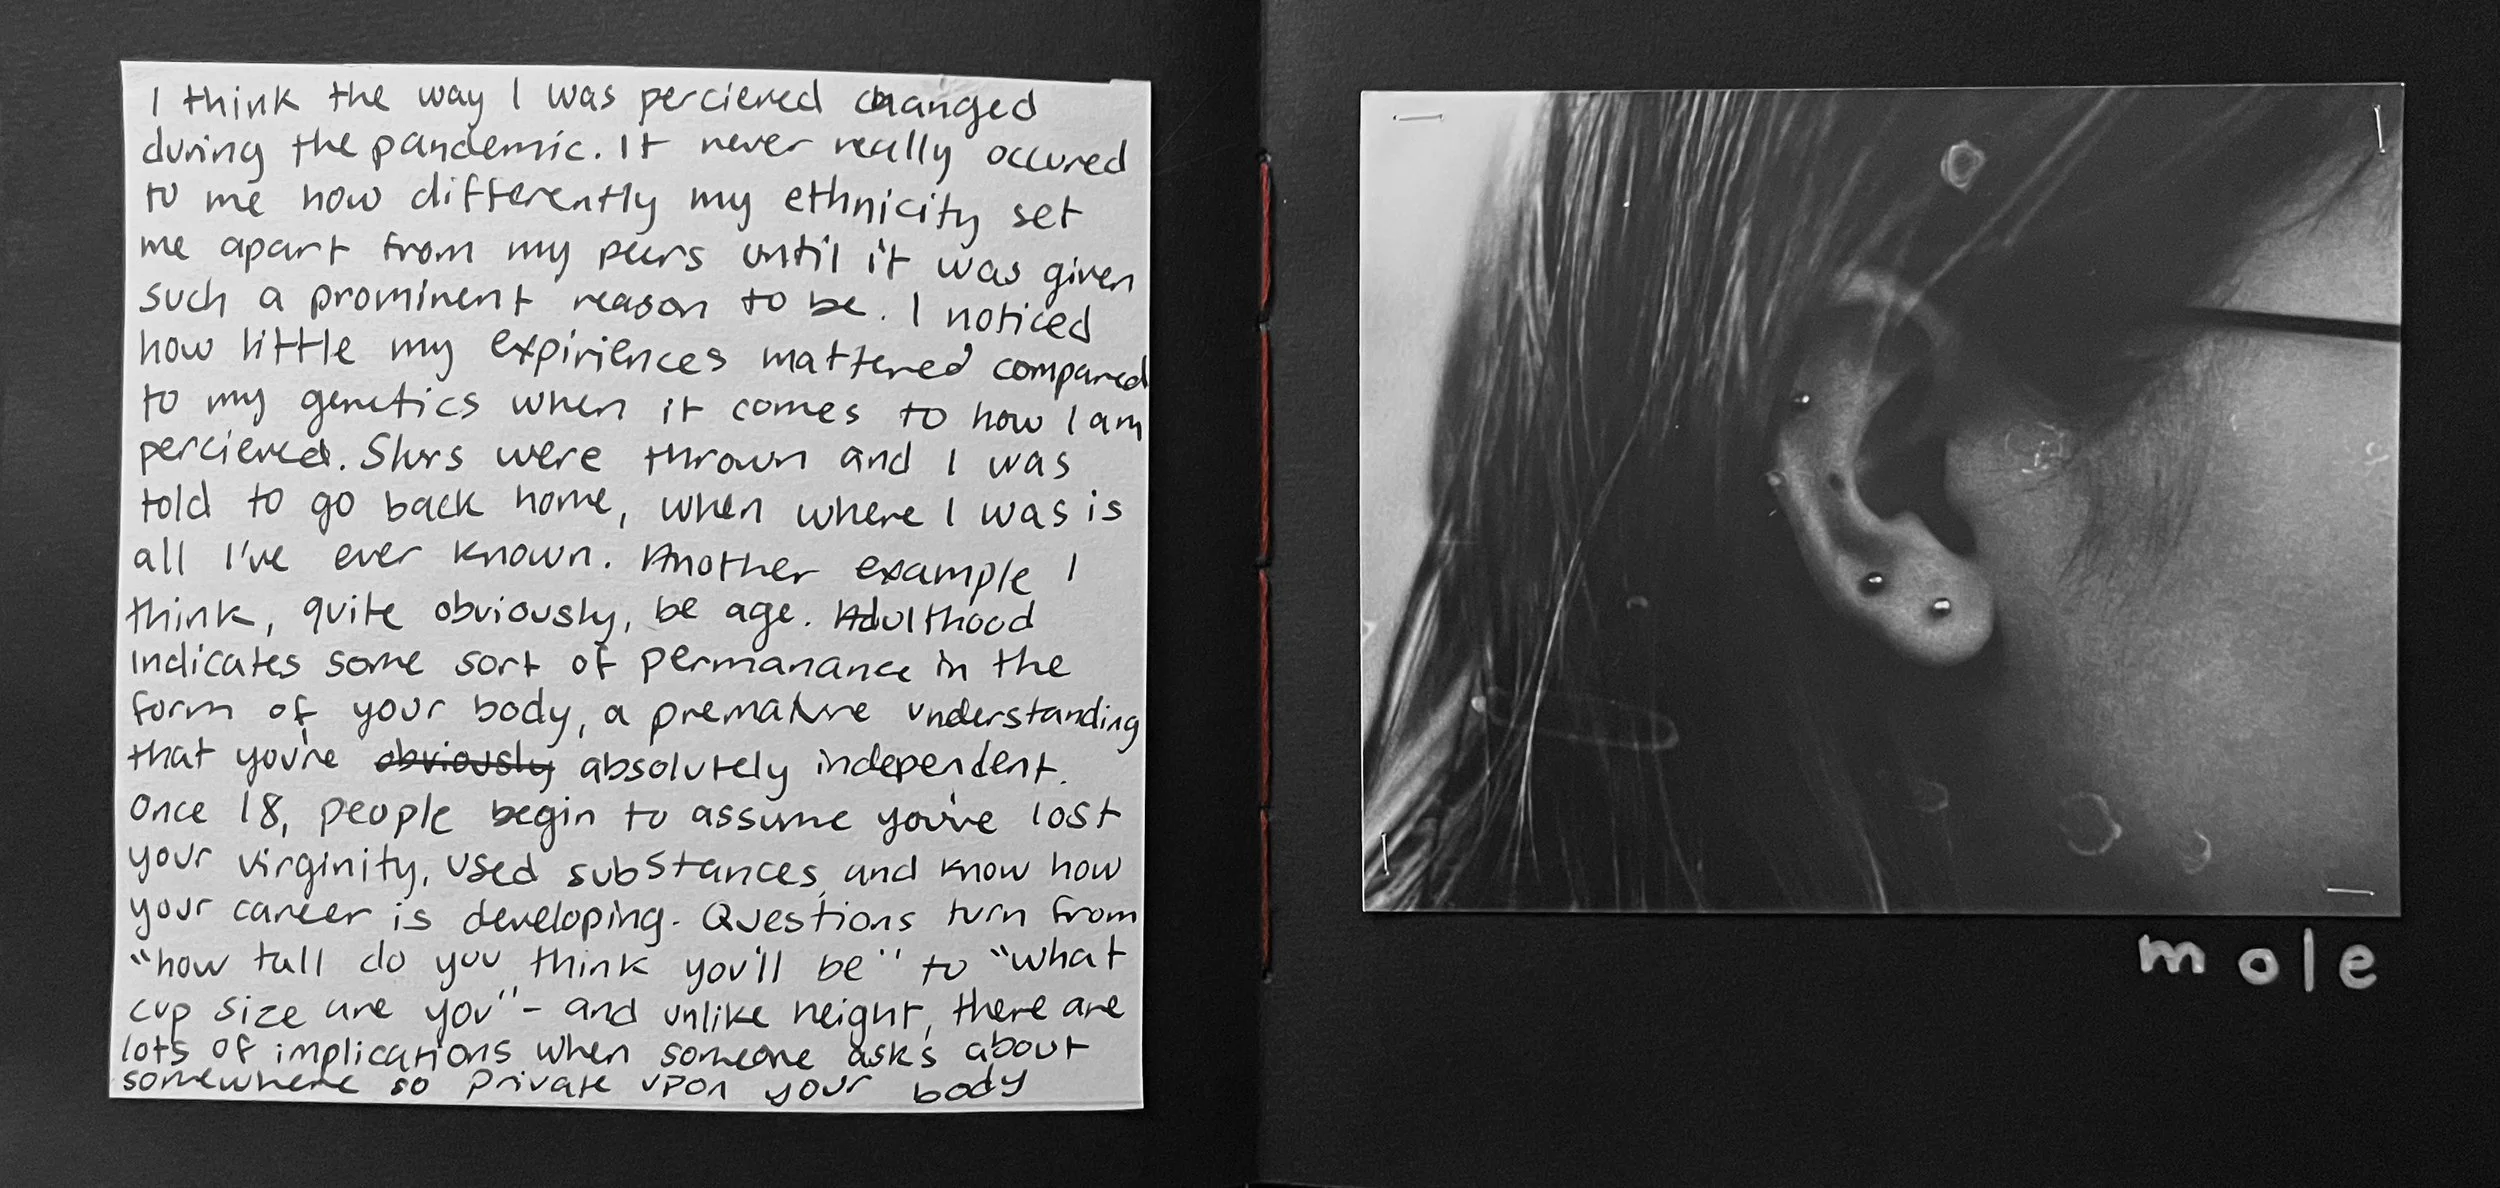 I think the way I was percieved changed
during the pandemic. It never really occured
to me how differently my ethnicity set
me apart from my peers until it was given
such a prominent reason to be. I noticed
how little my expiriences mattered compared
to my genetics when it comes to how I am
percieved. Slurs were thrown and I was
told to go back home, when where I was is
all I've ever known. Another example I
think, quite obviously, be age. Adulthood
indicates some sort of permanance in the
form of your body, a premature understanding
that you're obviously absolutely independent.
Once 18, people begin to assume you've lost
your virginity, used substances, and know how
your career is developing. Questions turn from
"how tall do you think you'll be" to "what
cup size are you" - and unlike height, there are
lots of implications when someone asks about
somewhere so private upon your body
mole